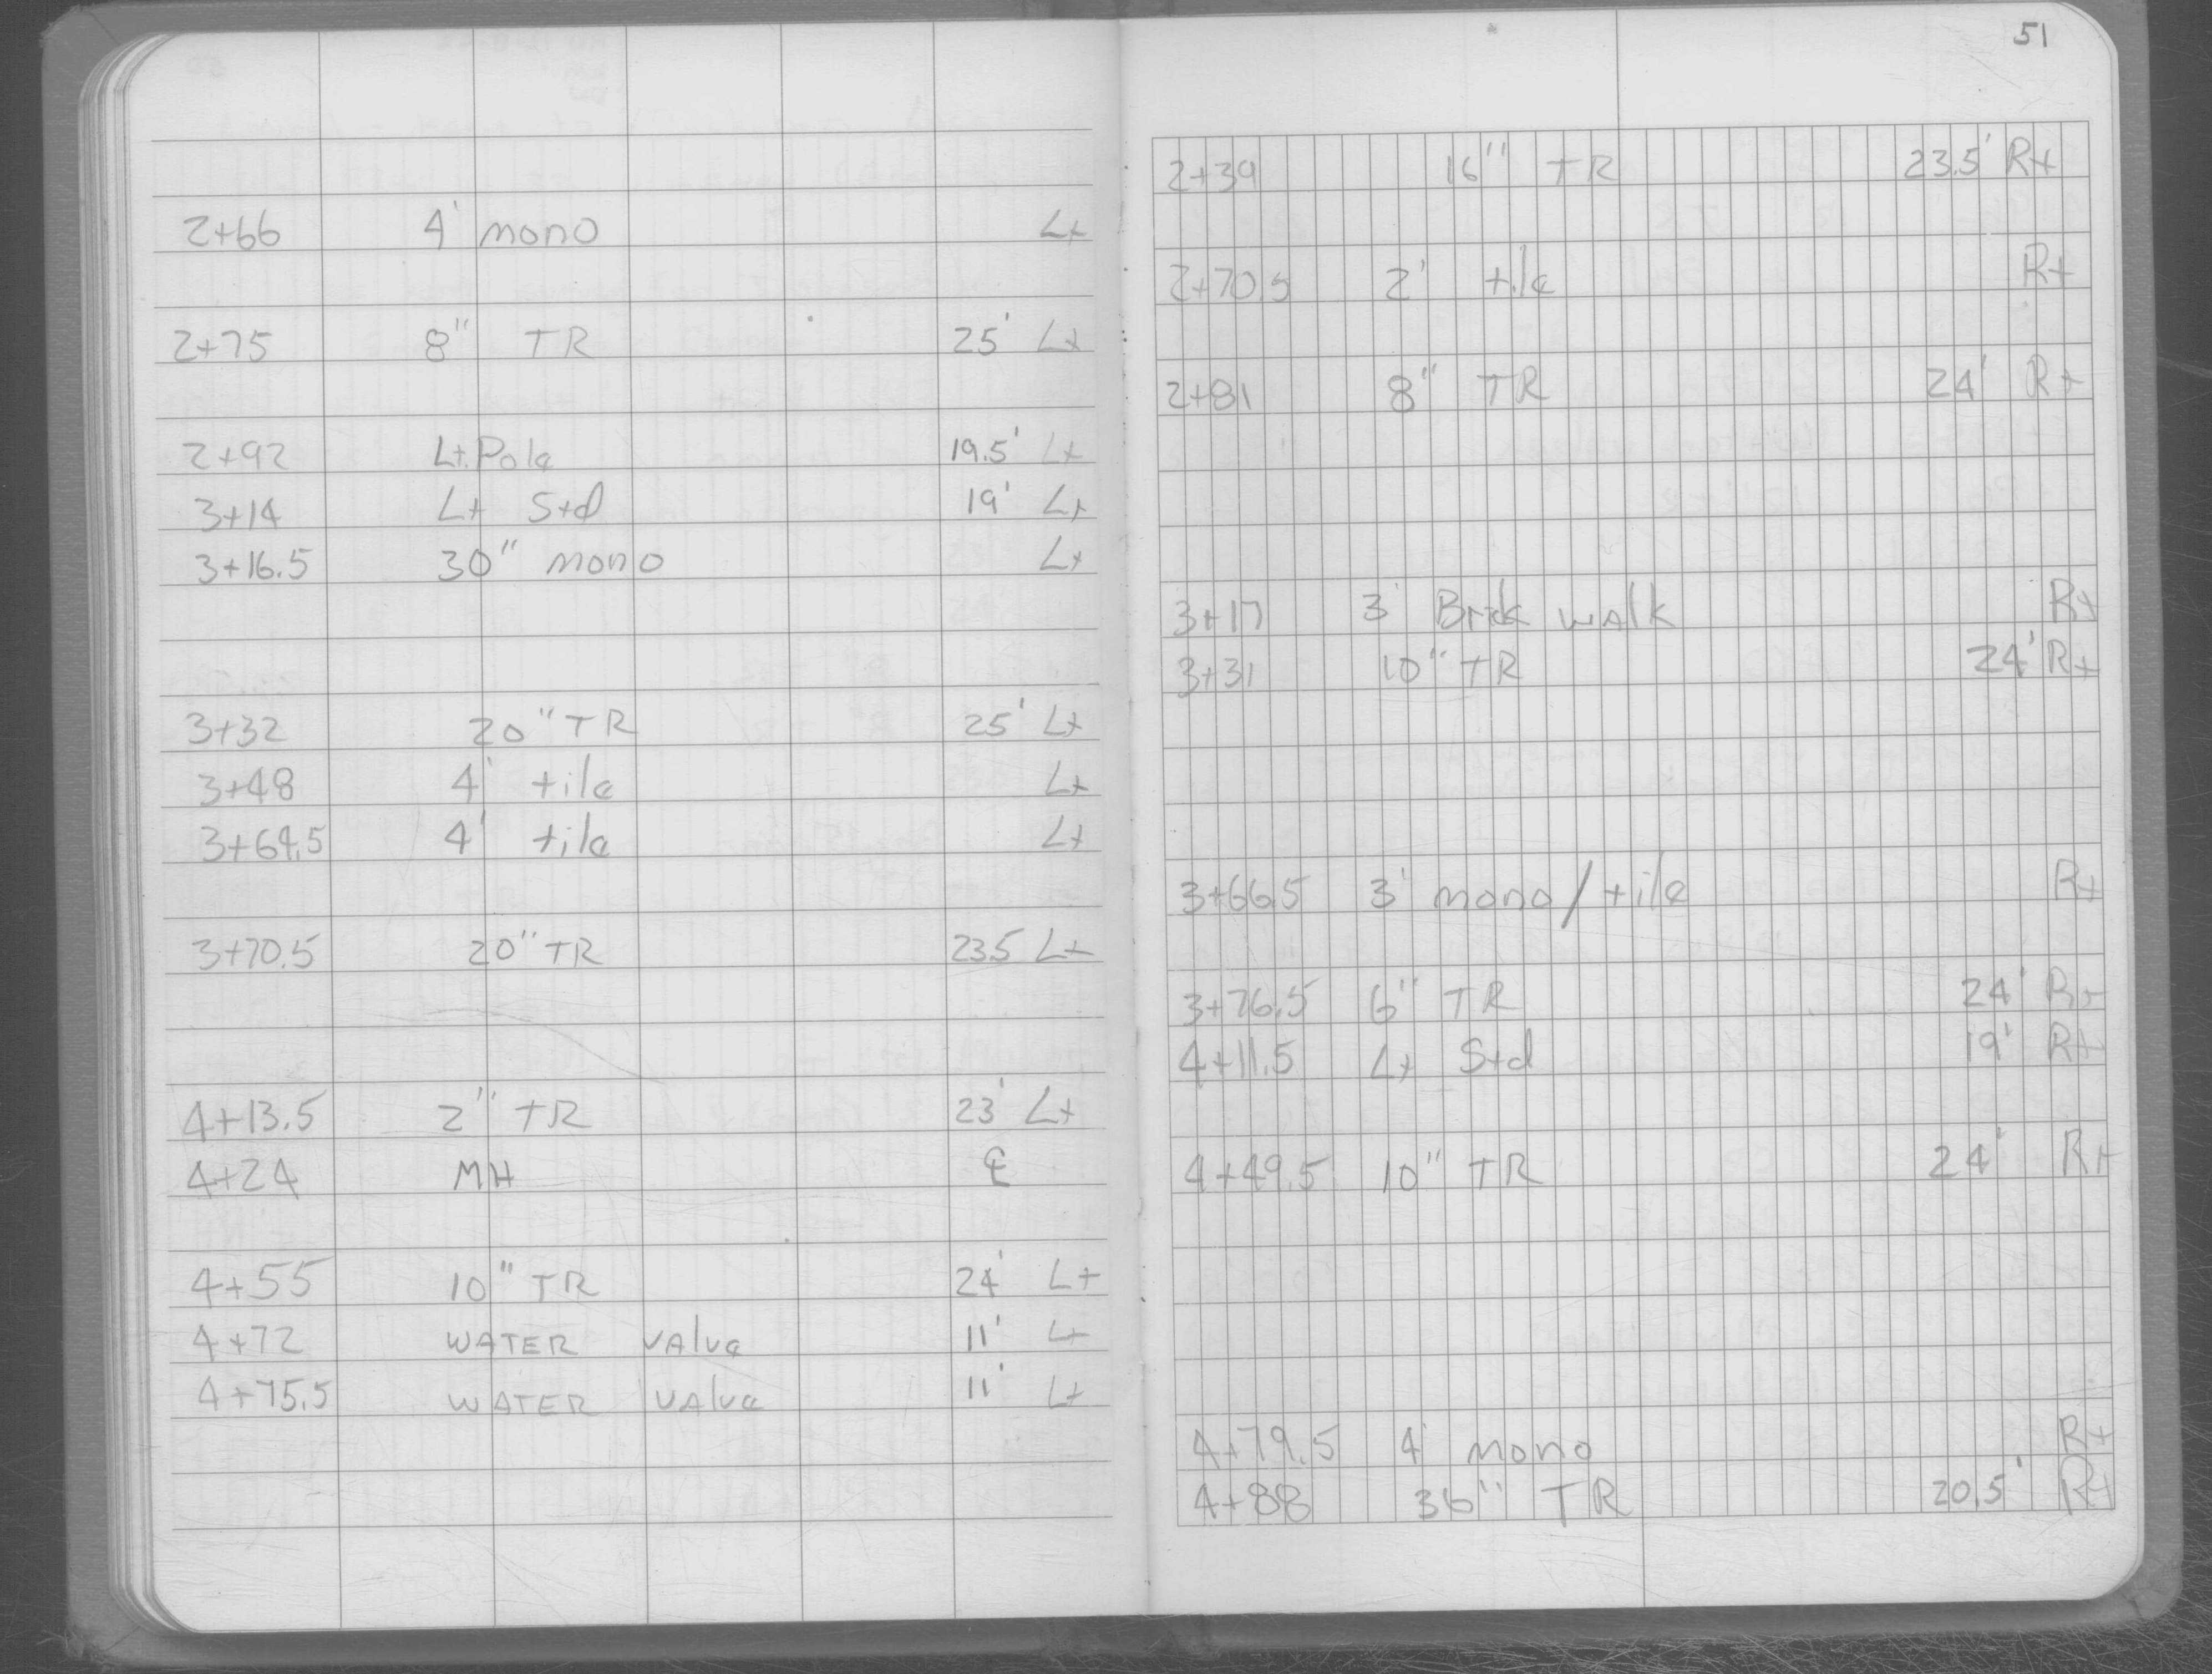 2+66 4' mono Lt
2+75 8" TR 25' Lt
2+92 Lt. Pole 19.5' Lt
3+14 Lt Std 19' Lt
3+16.5 30" mono Lt
3+32 20" TR 25' Lt
3+48 4' tile Lt
3+64.5 4' tile Lt
3+70.5 20" TR 23.5 Lt
4+13.5 2" TR 23' Lt
4+24 MH ℄
4+55 10" TR 24' Lt
4+72 WATER VAlve 11' Lt
4+75.5 WATER VAlve 11' Lt
51
2+39 16" TR 23.5' Rt
2+70.5 2' tile Rt
2+81 8" TR 24' Rt
3+17 3' Brick WAlk Rt
3+31 10" TR 24' Rt
3+66.5 3' mono/tile Rt
3+76.5 6" TR 24' Rt
4+11.5 Lt Std 19' Rt
4+49.5 10" TR 24' Rt
4+79.5 4' mono Rt
4+88 36" TR 20.5' Rt